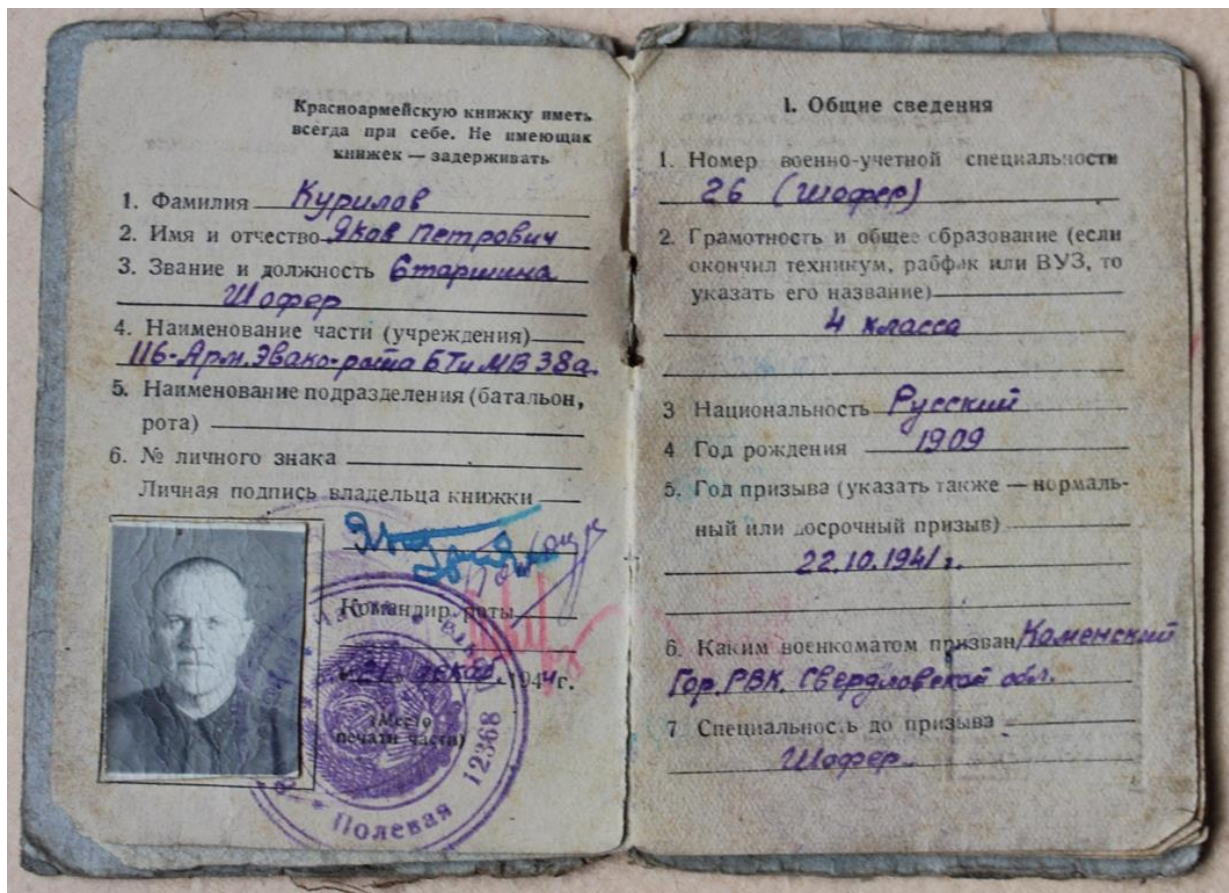 Красноармейскую книжку иметь
всегда при себе. Не имеющих
книжек — задерживать
1. Фамилия Курилов
2. Имя и отчество Яков Петрович
3. Звание и должность Старшина
Шофер
4. Наименование части (учреждения)
116-Арм. Эвако-рота БТиМВ 38а.
5. Наименование подразделения (батальон,
рота)
6. № личного знака
Личная подпись владельца книжки
Командир роты
« 21 » декаб. 1944г.
(Место
печати части)
Полевая 12368
I. Общие сведения
1. Номер военно-учетной специальности
26 (Шофер)
2. Грамотность и общее образование (если
окончил техникум, рабфак или ВУЗ, то
указать его название)
4 класса
3 Национальность Русский
4 Год рождения 1909
5. Год призыва (указать также — нормаль-
ный или досрочный призыв)
22.10.1941 г.
6. Каким военкоматом призван Каменский
Гор. РВК. Свердловской обл.
7 Специальность до призыва
Шофер.